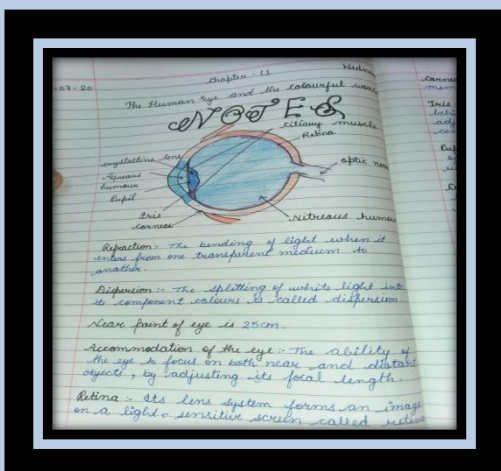 -07-20
Chapter-11
Wedn
The Human Eye and the colourful world
NOTES
ciliary muscle
Retina
crystalline lens
optic ner
Aqueous
humour
Pupil
Iris
cornea
Vitreous humo
Refraction:- The bending of light when it
enters from one transparent medium to
another.
Dispersion:- The splitting of white light into
its component colours is called dispersion.
Near point of eye is 25cm.
Accommodation of the eye:- The ability of
the eye to focus on both near and distant
objects, by adjusting its focal length.
Retina:- Its lens system forms an image
on a light-sensitive screen called retina
Cornea
mem
Iris
behi
adj
Pup